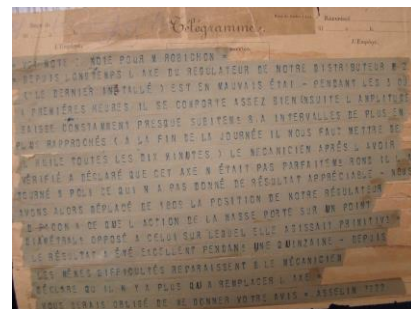 Télégramme.
NOTE : NOTE POUR M ROBICHON =
DEPUIS LONGTEMPS L AXE DU REGULATEUR DE NOTRE DISTRIBUTEUR N 2
(LE DERNIER INSTALLÉ ) EST EN MAUVAIS ÉTAT - PENDANT LES
PREMIÈRES HEURES IL SE COMPORTE ASSEZ BIEN ENSUITE L AMPLITUDE
BAISSE CONSTAMMENT PRESQUE SUBITEMT A INTERVALLES DE PLUS EN
PLUS RAPPROCHÉS ( A LA FIN DE LA JOURNÉE IL NOUS FAUT METTRE DE
L HUILE TOUTES LES DIX MINUTES ) LE MÉCANICIEN APRÈS L AVOIR
VÉRIFIÉ A DÉCLARÉ QUE CET AXE N ÉTAIT PAS PARFAITEMT ROND IL L
TOURNÉ & POLI CE QUI N A PAS DONNÉ DE RÉSULTAT APPRÉCIABLE - NOUS
AVONS ALORS DÉPLACÉ DE LA POSITION DE NOTRE RÉGULATEUR
DE FACON A CE QUE L ACTION DE LA MASSE PORTE SUR UN POINT
DIAMÉTRALT OPPOSÉ A CELUI SUR LEQUEL ELLE AGISSAIT PRIMITIVT
LE RÉSULTAT A ÉTÉ EXCELLENT PENDANT UNE QUINZAINE - DEPUIS
LES MÊMES DIFFICULTÉS REPARAISSENT & LE MÉCANICIEN
DÉCLARE QU IL N Y A PLUS QU A REMPLACER L AXE
VOUS SERAIS OBLIGÉ DE ME DONNER VOTRE AVIS = ASSELIN